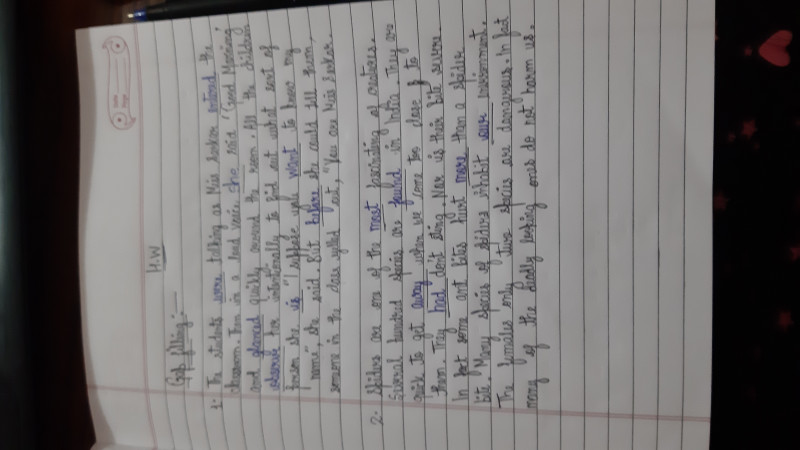 H.W
Gap filling:-
1- The students were talking as Miss Seekar entered the
classroom. Then in a loud voice, she said "Good Morning,"
and glanced quickly around the room. All the children
observe her intentionally to find out what sort of
person she is "I suppose you want to know my
name", she said. But before she could tell them,
someone in the class yelled out, "You are Miss Seekar.
2- Spiders are one of the most fascinating of creatures.
Several hundred species are found in India. They are
quick to get away when we come too close to
them. They had dont sting. Nor is their bite severe.
In fact some ant bites hurt more than a spider
bite. Many species of spiders inhabit our environment.
The females only two species are dangerous. In fact
many of the deadly looking ones do not harm us.